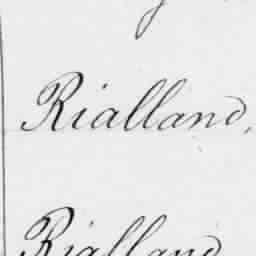 Rialland,
Rialland